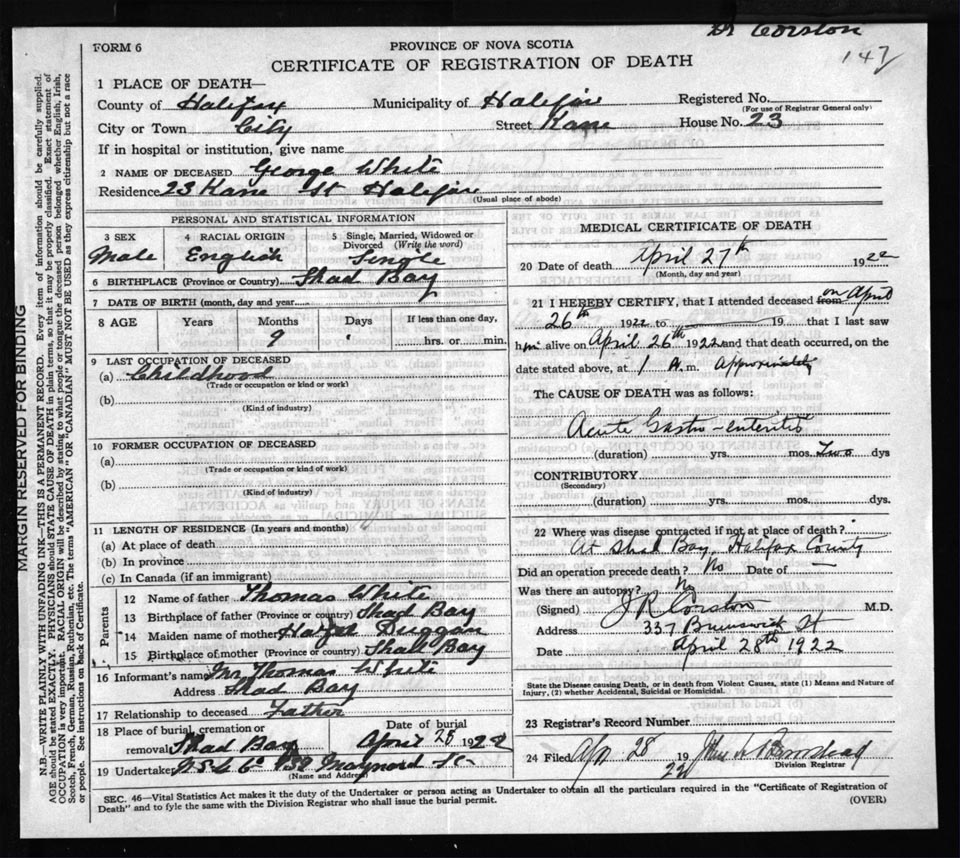 Dr Corston
147
FORM 6
PROVINCE OF NOVA SCOTIA
CERTIFICATE OF REGISTRATION OF DEATH
1 PLACE OF DEATH—
County of Halifax Municipality of Halifax Registered No.
(For use of Registrar General only)
City or Town City Street Kane House No. 23
If in hospital or institution, give name
2 NAME OF DECEASED George White
Residence 23 Kane St Halifax
(Usual place of abode)
PERSONAL AND STATISTICAL INFORMATION
3 SEX 4 RACIAL ORIGIN Single, Married, Widowed or
Divorced (Write the word)
Male English Single
6 BIRTHPLACE (Province or Country) Shad Bay
7 DATE OF BIRTH (month, day and year)
8 AGE Years Months Days If less than one day,
9 hrs. or min.
9 LAST OCCUPATION OF DECEASED
(a) Childhood
(Trade or occupation or kind or work)
(b)
(Kind of industry)
10 FORMER OCCUPATION OF DECEASED
(a)
(Trade or occupation or kind or work)
(b)
(Kind of industry)
11 LENGTH OF RESIDENCE (In years and months)
(a) At place of death
(b) In province
(c) In Canada (if an immigrant)
Parents
12 Name of father Thomas White
13 Birthplace of father (Province or country) Shad Bay
14 Maiden name of mother Hazel Duggan
15 Birthplace of mother (Province or country) Shad Bay
16 Informant's name Mr Thomas White
Address Shad Bay
17 Relationship to deceased Father
18 Place of burial, cremation or Date of burial
removal Shad Bay April 28 1922
19 Undertaker N.S.U. Co Maynard St
(Name and Address)
MEDICAL CERTIFICATE OF DEATH
20 Date of death April 27th 1922
(Month, day and year)
21 I HEREBY CERTIFY, that I attended deceased from on April
26th 1922 to 19 that I last saw
him alive on April 26th 1922 and that death occurred, on
date stated above, at 1 A.m. Approximately
The CAUSE OF DEATH was as follows:
Acute Gastro-enteritis
(duration) yrs. mos. Two dys
CONTRIBUTORY
(Secondary)
(duration) yrs. mos. dys.
22 Where was disease contracted if not at place of death?
At Shad Bay, Halifax County
Did an operation precede death? No Date of —
Was there an autopsy? No
(Signed) J R Corston M.D.
Address 337 Brunswick St
Date April 28th 1922
State the Disease causing Death, or in death from Violent Causes, state (1) Means and Nature of
Injury, (2) whether Accidental, Suicidal or Homicidal.
23 Registrar's Record Number
24 Filed Apr 28 19 22 John
Division Registrar
SEC. 46—Vital Statistics Act makes it the duty of the Undertaker or person acting as Undertaker to obtain all the particulars required in the "Certificate of Registration of
Death" and to fyle the same with the Division Registrar who shall issue the burial permit.
(OVER)
MARGIN RESERVED FOR BINDING
N.B.—WRITE PLAINLY WITH UNFADING INK—THIS IS A PERMANENT RECORD. Every item of information should be carefully supplied.
AGE should be stated EXACTLY. PHYSICIANS should STATE CAUSE OF DEATH in plain terms, so that it may be properly classified. Exact statement of
OCCUPATION is very important. RACIAL ORIGIN will be described by stating to what people or tongue the deceased person belonged whether English, Irish,
Scotch, French, German, Russian, Ruthenian, etc. The terms "AMERICAN" OR "CANADIAN" MUST NOT BE USED as they express citizenship but not a race
or people. See instructions on back of Certificate.